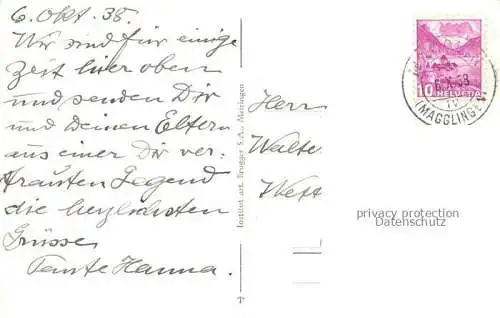 6. Okt. 38.
Wir sind für einige
Zeit hier oben
und senden Dir
und Deinen Eltern
aus einer Dir ver-
trauten Gegend
die herzlichsten
Grüsse
Tante Hanna.
Institut art. Brugger S. A., Meiringen
Herr
Walte
Wett
10 HELVETIA
6.X.38
(MAGGLINGE
privacy protection
Datenschutz